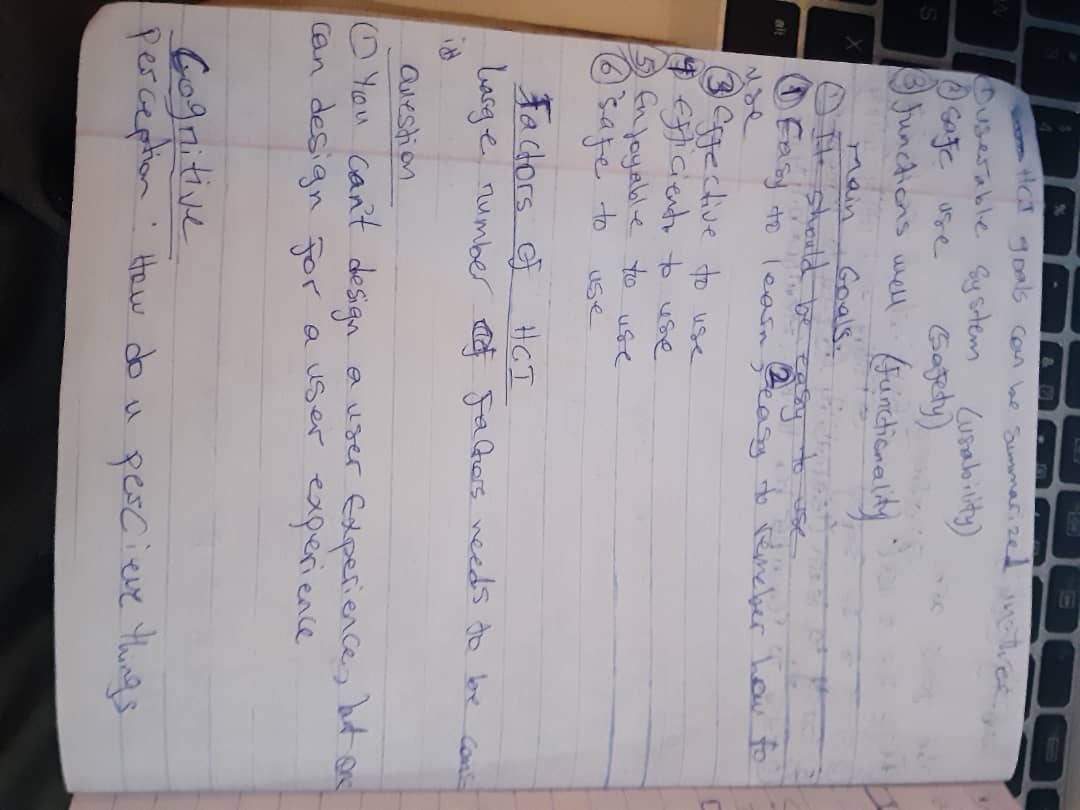 HCI goals can be summarized in three
① userable system (usability)
② safe use (safety)
③ functions well (functionality
main Goals.
① It should be easy to use
① Easy to learn, ② easy to remeber how to
use
③ Effective to use
④ Efficient to use
⑤ Enjoyable to use
⑥ safe to use
Factors of HCI
Large number of factors needs to be cons
id
Question
① You can't design a user Experience, but one
can design for a user experience
Cognitive
perception : How do u percieve things